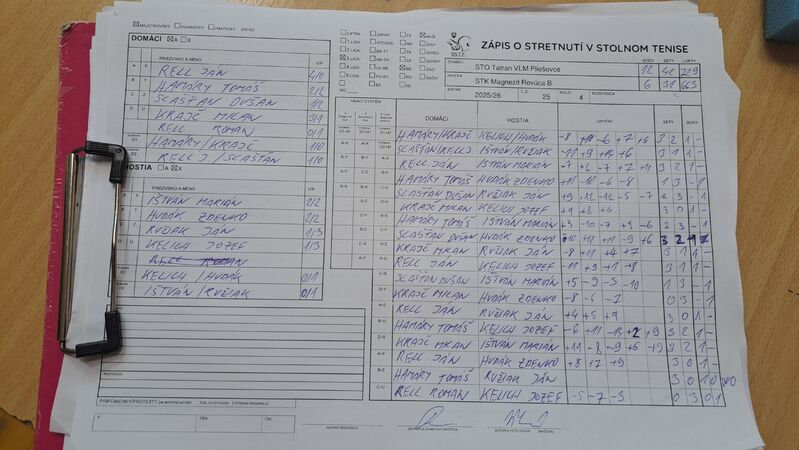 MAJSTROVSKÝ POHÁROVÝ PRIATEĽSKÝ ZÁPAS
DOMÁCI A X
PRIEZVISKO A MENO V/P
RELL JÁN 4/0
HAMARY TOMÁŠ 2/2
SLASŤAN DUŠAN 1/2
KRAJČ MILAN 3/1
RELL ROMAN 0/1
HAMARY/KRAJČ 1/0
RELL J/SLASŤAN 1/0
HOSTIA A X
PRIEZVISKO A MENO V/P
IŠTVÁN MARIÁN 2/2
HUDÁK ZDENKO 2/2
RUŽIAK JÁN 1/3
KELICH JOZEF 1/3
KELICH/HUDÁK 0/1
IŠTVÁN/RUŽIAK 0/1
ROZHODCA
PRIPOMIENKY/PROTESTY
DŇA ČAS
SSTZ
ZÁPIS O STRETNUTÍ V STOLNOM TENISE
BODY SETY LOPTY
DOMÁCI STO Tatran VLM Pliešovce 12 42 729
HOSTIA STK Magnezit Revúca B 6 31 663
ROČNÍK 2025/26 Č.Z. 25 KOLO 4 ROZHODCA
DOMÁCI HOSTIA LOPTIČKY SETY BODY
HAMARY/KRAJČ KELICH/HUDÁK -8 +11 -6 +7 +6 3 2 1 -
SLASŤAN/RELL J IŠTVÁN/RUŽIAK -11 +9 +14 +6 3 1 1 -
RELL JÁN IŠTVÁN MARIÁN -7 +6 -7 +7 +11 3 2 1 -
HAMARY TOMÁŠ HUDÁK ZDENKO +11 -10 -6 -8 1 3 - 1
SLASŤAN DUŠAN RUŽIAK JÁN +9 +12 -12 -5 -7 2 3 - 1
KRAJČ MILAN KELICH JOZEF +9 +8 +6 3 0 1 -
HAMARY TOMÁŠ IŠTVÁN MARIÁN +3 -10 -7 +9 -6 2 3 - 1
SLASŤAN DUŠAN HUDÁK ZDENKO +10 +12 -11 -9 +6 3 2 1
KRAJČ MILAN RUŽIAK JÁN -8 +11 +4 +7 3 1 1 -
RELL JÁN KELICH JOZEF -11 +9 +1 +8 3 1 1 -
SLASŤAN DUŠAN IŠTVÁN MARIÁN +5 -9 -3 -10 1 3 - 1
KRAJČ MILAN HUDÁK ZDENKO -8 -6 -2 0 3 - 1
RELL JÁN RUŽIAK JÁN +4 +5 +9 3 0 1 -
HAMARY TOMÁŠ KELICH JOZEF -6 +11 -13 +2 +9 3 2 1 -
KRAJČ MILAN IŠTVÁN MARIÁN +11 -8 -9 +5 +9 3 2 1 -
RELL JÁN HUDÁK ZDENKO +8 +7 +9 3 0 1 -
HAMARY TOMÁŠ RUŽIAK JÁN 3 0 1 0 WO
RELL ROMAN KELICH JOZEF -5 -7 -3 0 3 0 1